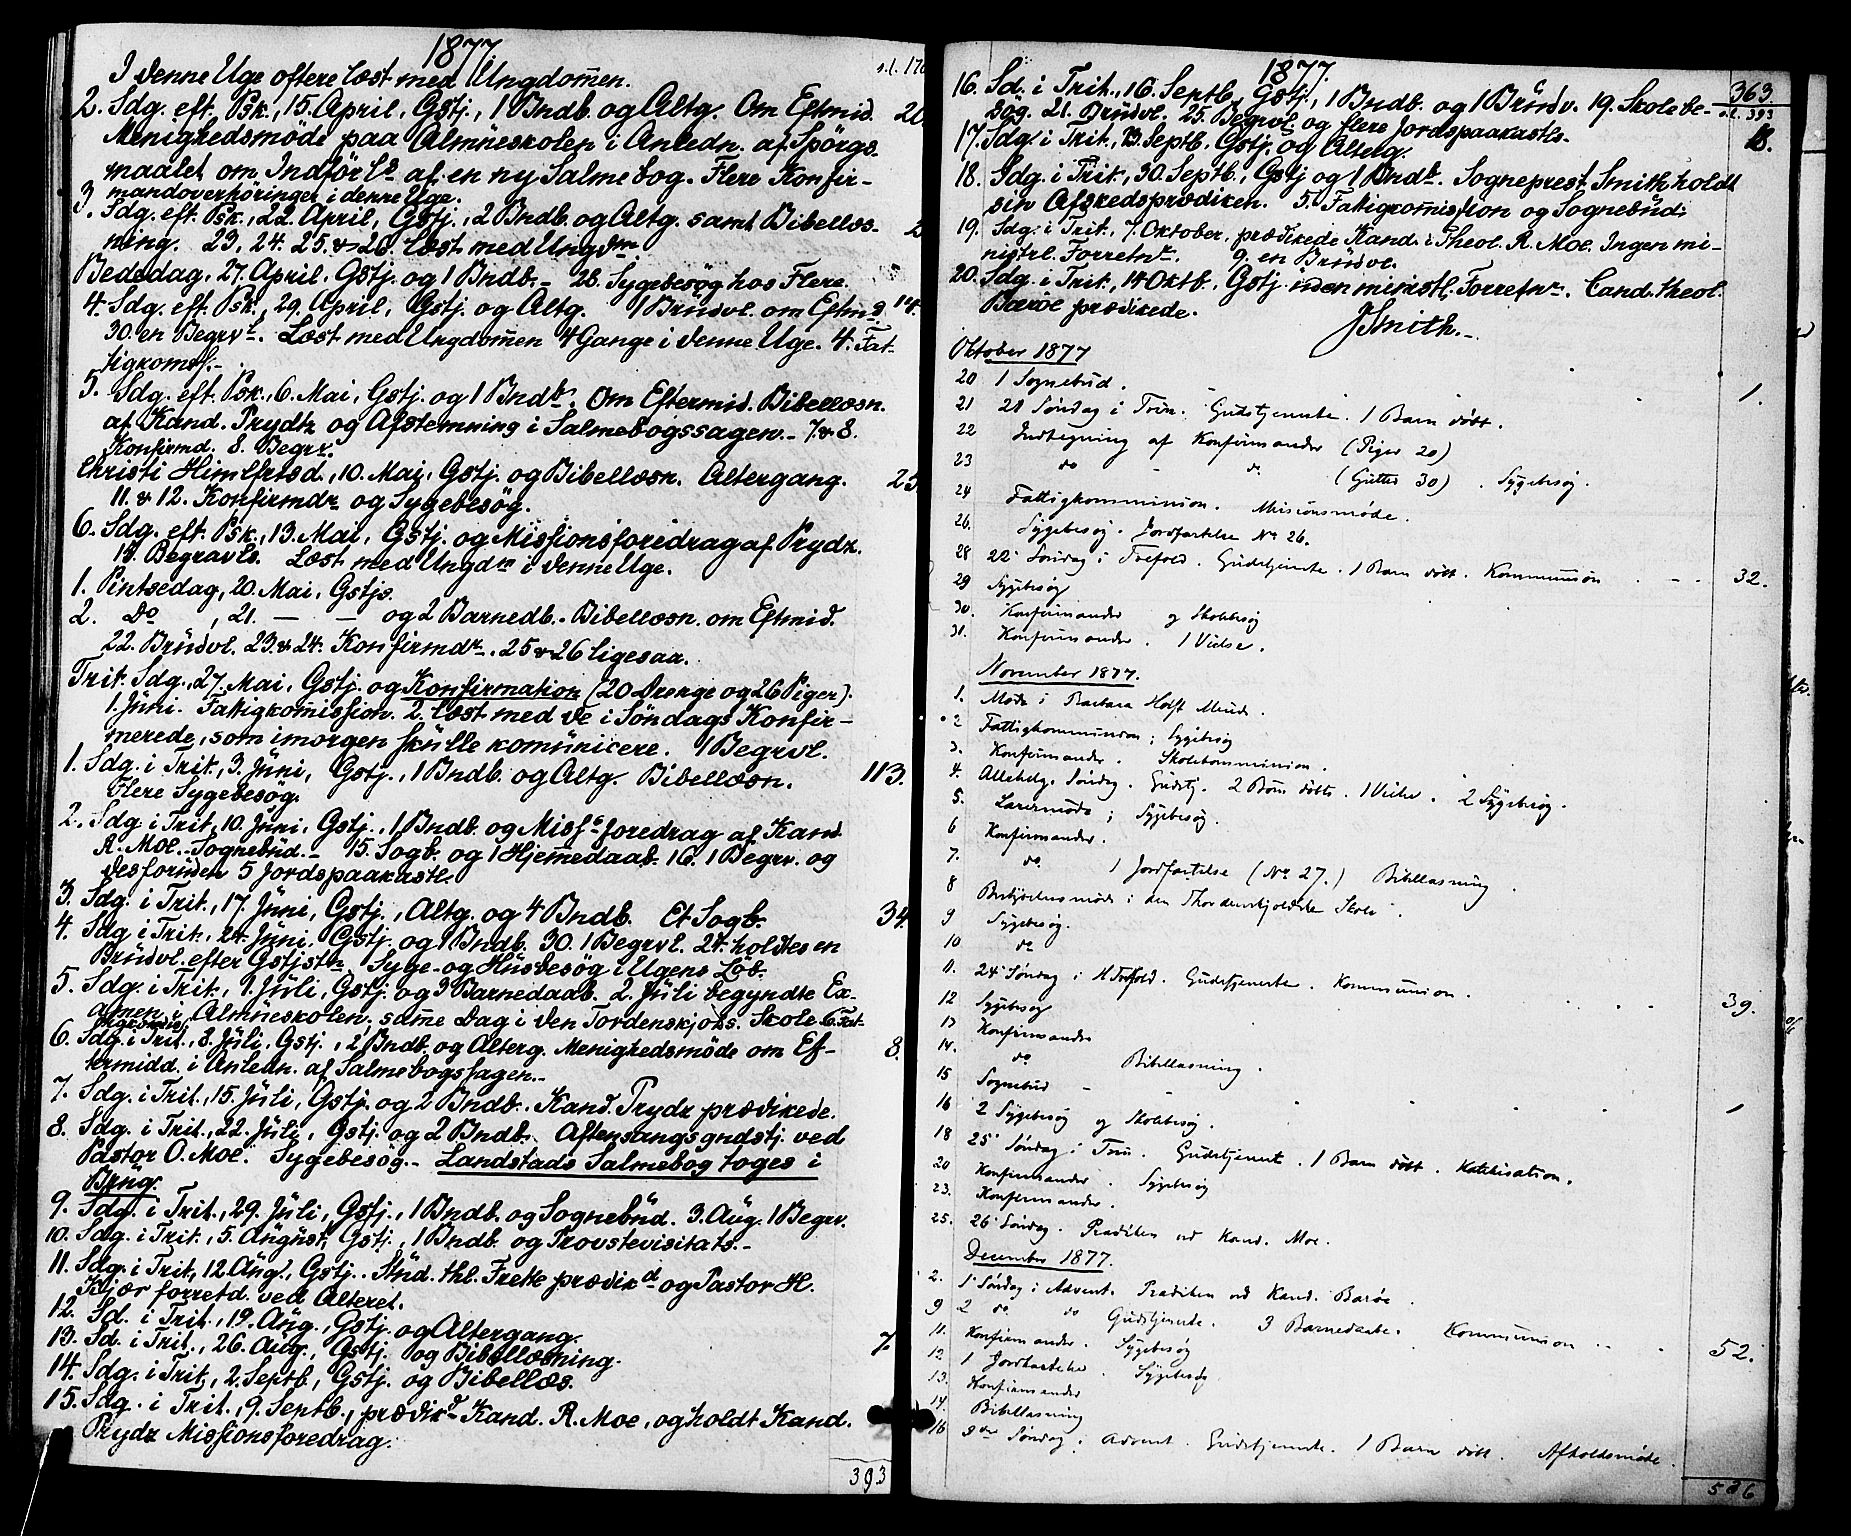 1877.
I denne Uge oftere læst med Ungdomen.
2. Sdg. eft. Psk., 15. April, Gstj., 1 Bndb. og Altg. Om Eftmid.
Menighedsmøde paa Almneskolen i Anledn. af Spörgs-
maalet om Indförls af en ny Salmebog. Flere Konfir-
mandoverhöringer i denne Uge.
3. Sdg. eft. Psk., 22. April, Gstj., 2 Bndb. og Altg. samt Bibellæs-
ning. 23, 24. 25. & 26. læst med Ungdm
Bededag, 27. April, Gstj. og 1 Bndb. - 28. Sygebesøg hos Flere.
4. Sdg. eft. Psk., 29. April, Gstj. og Altg. 1 Brüdvl. om Eftmd. 14.
30. en Begrvl. Læst med Ungdomen 4 Gange i denne Uge. 4. Fat-
tigkomsf.-
5. Sdg. eft. Psk., 6. Mai, Gstj. og 1 Bndb. Om Eftermid. Bibellæsn.
af Kand. Prydz og Afstemning i Salmebogssagen. - 7. & 8.
Konfirmd. 8. Begrv.
Christi Himlfrtsd., 10. Mai, Gstj. og Bibellæsn. Altergang. 25
11. & 12. Konfirmdr og Sygebesøg.
6. Sdg. eft. Psk., 13. Mai, Gstj. og Missionsforedrag af Prydz.
14. Begravls. Læst med Ungdm i denne Uge.
1. Pintsedag, 20. Mai, Gstjs.
2. Do , 21. — — og 2 Barnedb. - Bibellæsn. om Eftmid.
22. Brüdvl. 23. & 24. Konfirmdr. 25 & 26 ligesaa.
Trit. Sdg., 27. Mai, Gstj. og Konfirmation (20 Drenge og 26 Piger).
1. Jüni. Fattigkomission. 2. læst med de i Söndags Konfir-
merede, som imorgen skülle komünicere. 1 Begrvl.
1. Sdg. i Trit., 3. Jüni, Gstj., 1 Bndb. og Altg. Bibellæsn. 113.
Flere Sygebesøg.
2. Sdg i Trit, 10. Jüni, Gstj., 1 Bndb. og Missforedrag af Kand
R. Moe. - Sognebüd. - 15. Sogb. og 1 Hjemedaab. 16. 1 Begrv. og
desforüden 5 Jordspaakastl.
3. Sdg. i Trit., 17. Jüni, Gstj., Altg. og 4 Bndb. Et Sogb. 34.
4. Sdg i Trit., 24. Jüni. Gstj. og 1 Bndb. 30. 1 Begrvl. 24. holdtes en
Brüdvl. efter Gstjstn. Syge- og Hüsbesøg i Ugens Löb.
5. Sdg. i Trit., 1. Jüli, Gstj. og 3 Barnedaab. 2. Jüli begyndte Ex-
amen i Almneskolen, same Dag i den Tordenskjolds. Skole. 6. Fat-
6. Sdg. i Trit., 8. Jüli, Gstj., 2 Bndb. og Alterg. Menighedsmøde om Ef- 8.
termidd. i Anledn. af Salmebogssagen. -
7. Sdg. i Trit., 15. Jüli, Gstj. og 2 Bndb. Kand. Prydz prædikede.
8. Sdg. i Trit., 22. Jüli, Gstj. og 2 Bndb. Aftensangsgndstj. ved
Pastor O. Moe. Sygebesøg. - Landstads Salmebog toges i
Brüg.
9. Sdg. i Trit., 29. Jüli, Gstj., 1 Bndb. og Sognebüd. 3. Aüg. 1 Begrv.
10. Sdg. i Trit., 5. Aügüst, Gstj., 1 Bndb. og Provstevisitats. -
11. Sdg. i Trit, 12. Aüg., Gstj. Stüd. thl. Frette prædikd og Pastor H.
Kjær forretd. ved Alteret.
12. Sd. i Trit., 19. Aüg., Gstj. og Altergang. 7.
13. Sd. i Trit., 26. Aüg., Gstj. og Bibellæsning.
14. Sdg. i Trit., 2. Septb, Gstj. og Bibellæs.
15. Sdg. i Trit., 9. Septb., prædikd Kand. R. Moe, og holdt Kand.
Prydz Missionsforedrag.
393
1877.
363
16. Sd. i Trit., 16. Septb., Gstj., 1 Bndb. og 1 Brüdv. 19. Skolebe-
søg. 21. Brüdvl. 25. Begrvl. og flere Jordspaakastls.
17. Sdg. i Trit., 23. Septb., Gstj. og Alterg. 18.
18. Sdg. i Trit., 30. Septb., Gstj og 1 Bndb. Sogneprest Smith holdt
sin Afskedsprædiken. 5. Fattigkomission og Sognebüd.
19. Sdg. i Trit., 7. Oktober, prædikede Kand. i Theol. R. Moe. Ingen mi-
nistrl. Forretn. 9. en Brüdvl.
20. Sdg. i Trit., 14 Oktb., Gstj. uden ministl. Forretnr. Cand. theol.
Barøe prædikede. JSmith. -
Oktober 1877
20 1 Sognebud. 1.
21 21 Søndag i Trin. Gudstjeneste. 1 Barn døbt.
22 Indtegning af Konfirmander (Piger 20)
23 do - do (Gutter 30). Sygebesøg.
24 Fattigkommission. Misionsmøde.
26. Sygebesøg. Jordfæstelse No 26.
28 22' Søndag i Trefold. Gudstjeneste. 1 Barn døbt. Kommunion 32.
29 Sygebesøg
30. Konfirmander og Skolebesøg
31. Konfirmander. 1 Vielse.
November 1877.
1. Møde i Barbara Holst Minde.
2 Fattigkommission; Sygebesøg
3. Konfirmander. Skolekommission.
4. Allehelg. Søndag. Gudstj. 2 Børn døbte. 1 Vielse. 2 Sygebesøg.
5. Lærermøde; Sygebesøg.
6 Konfirmander.
7. do 1 Jordfæstelse (No 27.) Bibellæsning.
8 Bestyrelsesmøde i den Thordenskjoldske Skole.
9 Sygebesøg.
10 do
11. 24' Søndag i Trefold. Gudstjeneste. Kommunion. 39.
12 Sygebesøg
13 Konfirmander
14. do Bibellæsning.
15 Sognebud 1
16 2 Sygebesøg og Skolebesøg.
18 25' Søndag i Trin. Gudstjeneste. 1 Barn døbt. Katekisation.
20 Konfirmander. Sygebesøg
23. Konfirmander.
25. 26' Søndag. Prædiken ved Kand. Moe.
December 1877.
2. 1' Søndag i Advent. Prædiken ved Kand. Barøe.
9 2 do do Gudstjeneste. 3 Barnedaabe. Kommunion 52.
11. Konfirmander. Sygebesøg
12 1 Jordfæstelse. Sygebesøg
13. Konfirmander
14. Bibellæsning
16 3die Søndag i Advent. Gudstjeneste. 1 Barn døbt. Afholdsmøde.
536